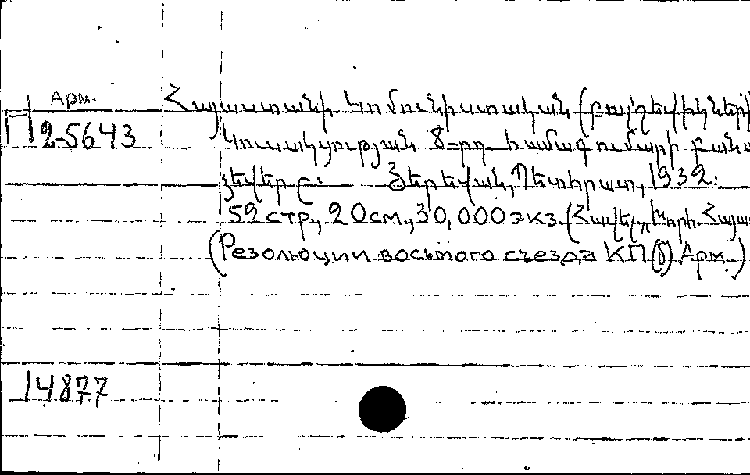 Арм.
Հայաստանի կոմունիստական (բոլշևիկների
П 2-5643
կուսակցության 8-րդ համագումարի բանա
ձևերը: Յերեվան, Պետհրատ, 1932.
52 стр., 20см., 30,000 экз. (Հայ
(Резолюции восьмого съезда КП(б) Арм.)
14877